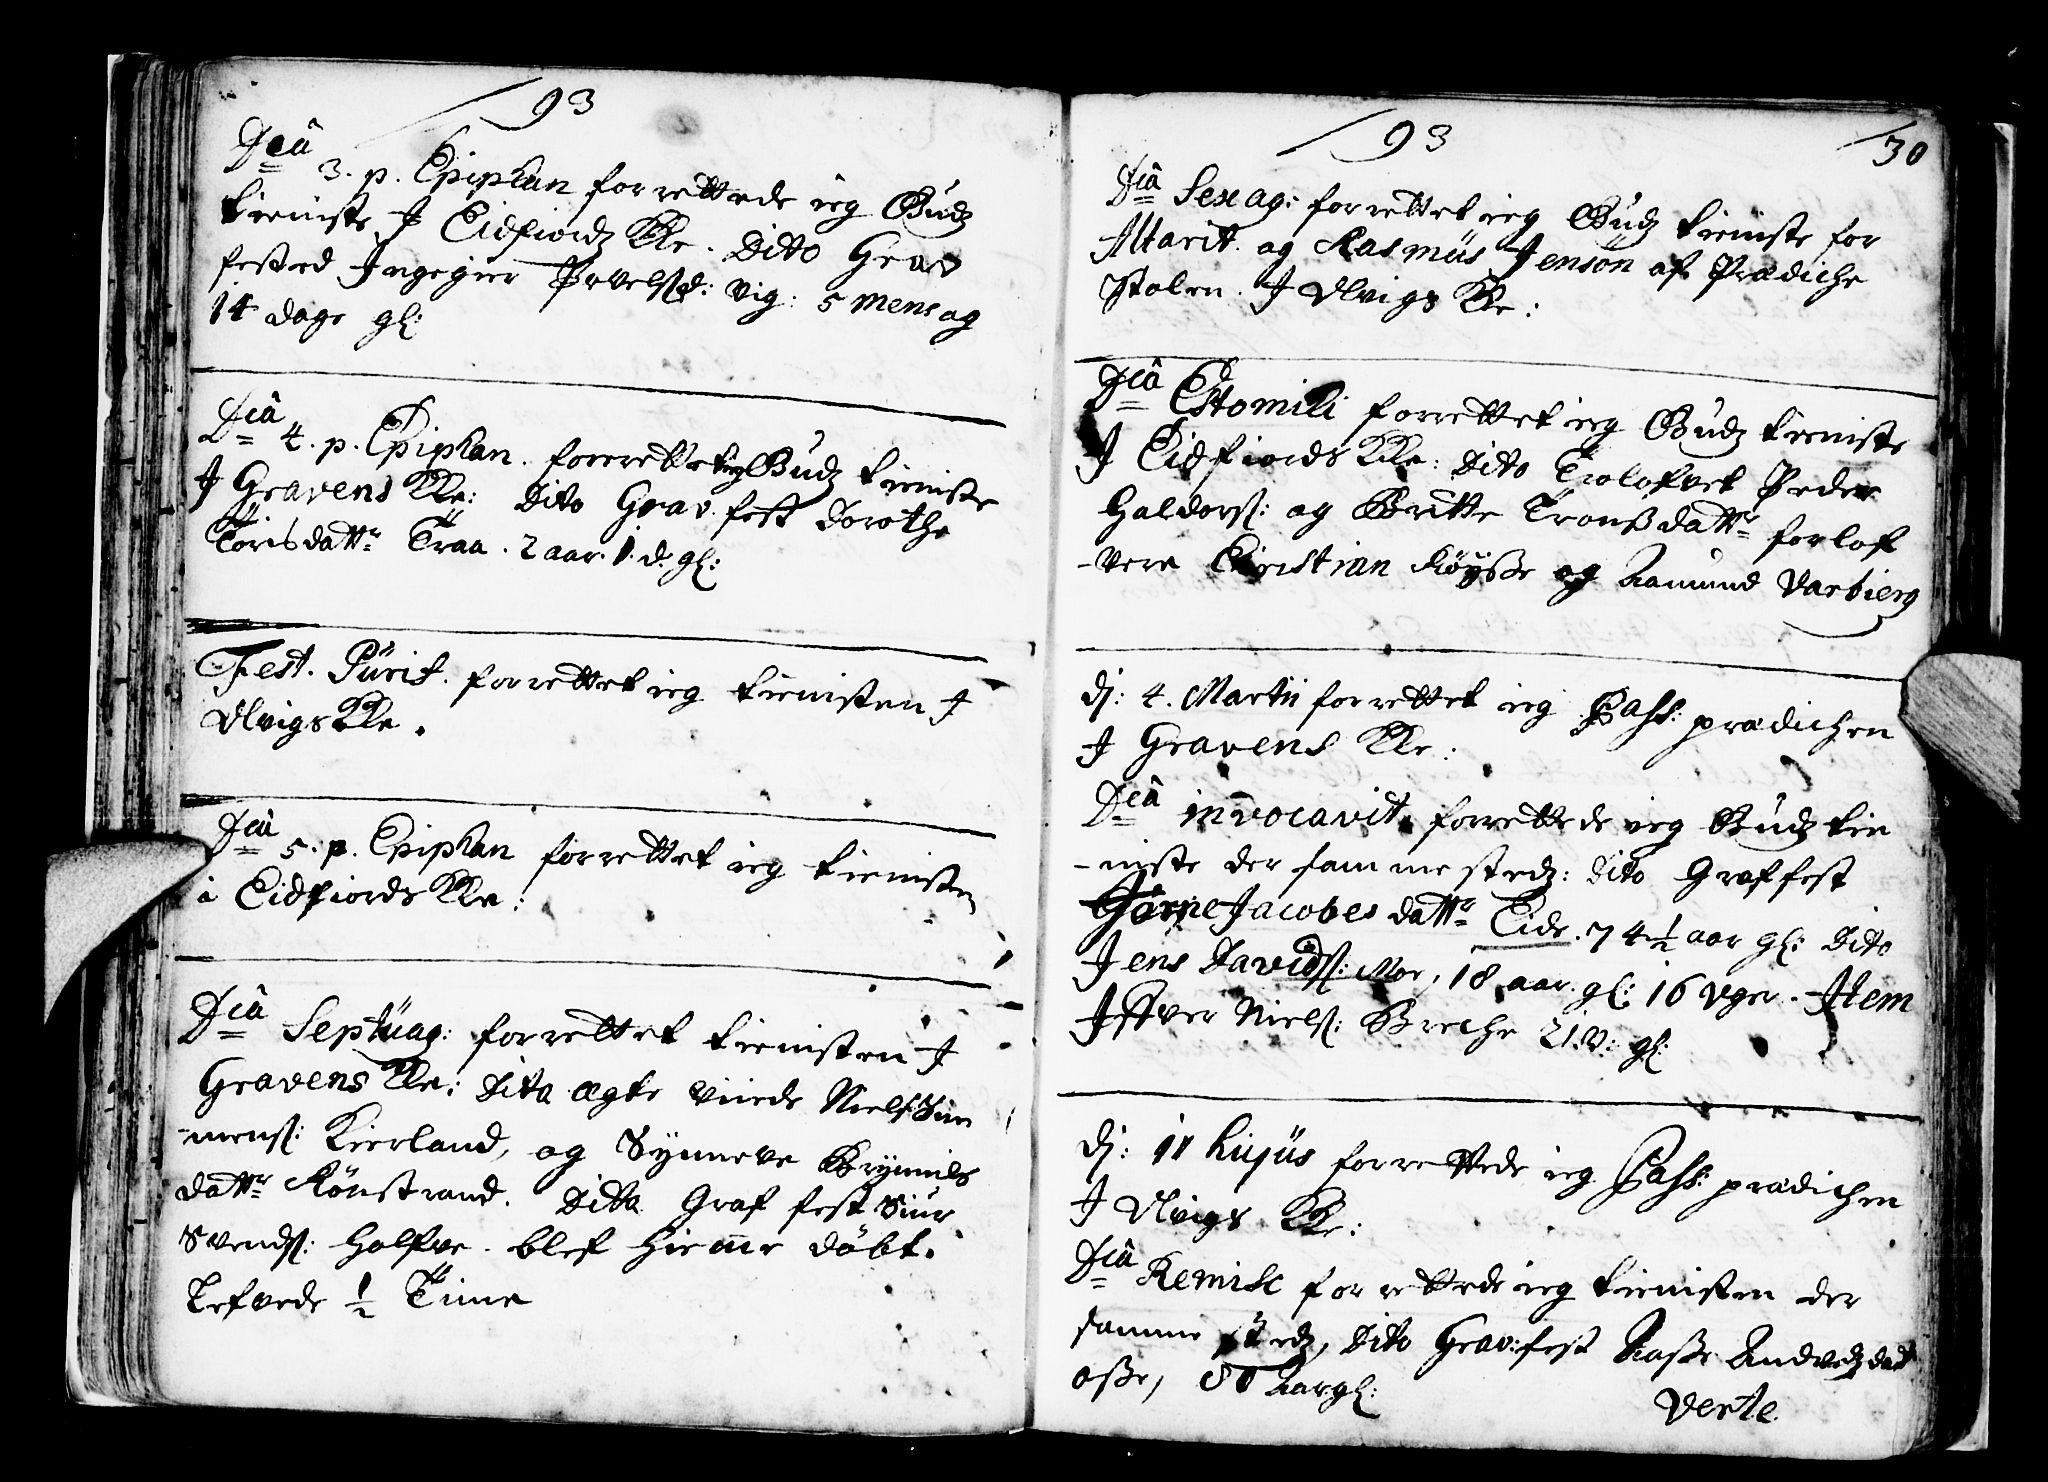 93
Dcâ 3. p. Epiphan forrettede ieg Gudz
tieniste J Eidfiordz Kke. Dito Grav
fested Ingegier Povelsd: Vig: 5 mens og
14 dage gl:
Dcâ 4. p. Epiphan. forrettet ieg Gudz tieniste
J Gravens Kke: Dito Grav fest Dorothe
Törisdattr Traa. 2 aar. 1. d. gl:
Fest. Pürif. forrettet ieg tienisten J
Ulvigs Kke.
Dcâ 5. p. Epiphan forrettet ieg tienisten
i Eidfiords Kke:
Dcâ Septüag: forrettet tienisten J
Gravens Kke: Dito ægte viede Niels Sim
-mens: Kierland, og Synneve Brÿnnils
dattr Rönstrand. Dito Graf fest Siur
Svends: Holfve. blef hieme döbt.
Lefvede ½ Time
93
30
Dcâ Sexag: forrettet ieg Gudz tieniste for
Altarit. og Rasmüs Jenson af Prædiche
Stolen. J Ulvigs Kke:
Dcâ Estomihi forrettet ieg Gudz tieniste
J Eidfiords Kke: Dito Trolofvet Peder
Haldors: og Britte Tronsdattr forlof
-vere Christian Röysse og Aamund Varbierg
dj: 4. Martii forrettet ieg Pass: prædichen
J Gravens Kke:
Dcâ invocavit. forrettede ieg Gudz tie
-niste der samme stedz: Dito Graf fest
Jacobes dattr Eide. 74½ aar gl: Dito
Jens Davids: Mor, 18 aar. gl: 16 Uger. Item
Iffver Niels: Breche 21. U: gl:
dj: 11 hujüs forrettede ieg Pass: prædichen
J Ulvigs Kke:
Dcâ Remisc forrettede ieg tienisten der
samme stedz, Dito Grav: fest Aasse Andvedz dat
osse, 80 Aar gl:
Verte